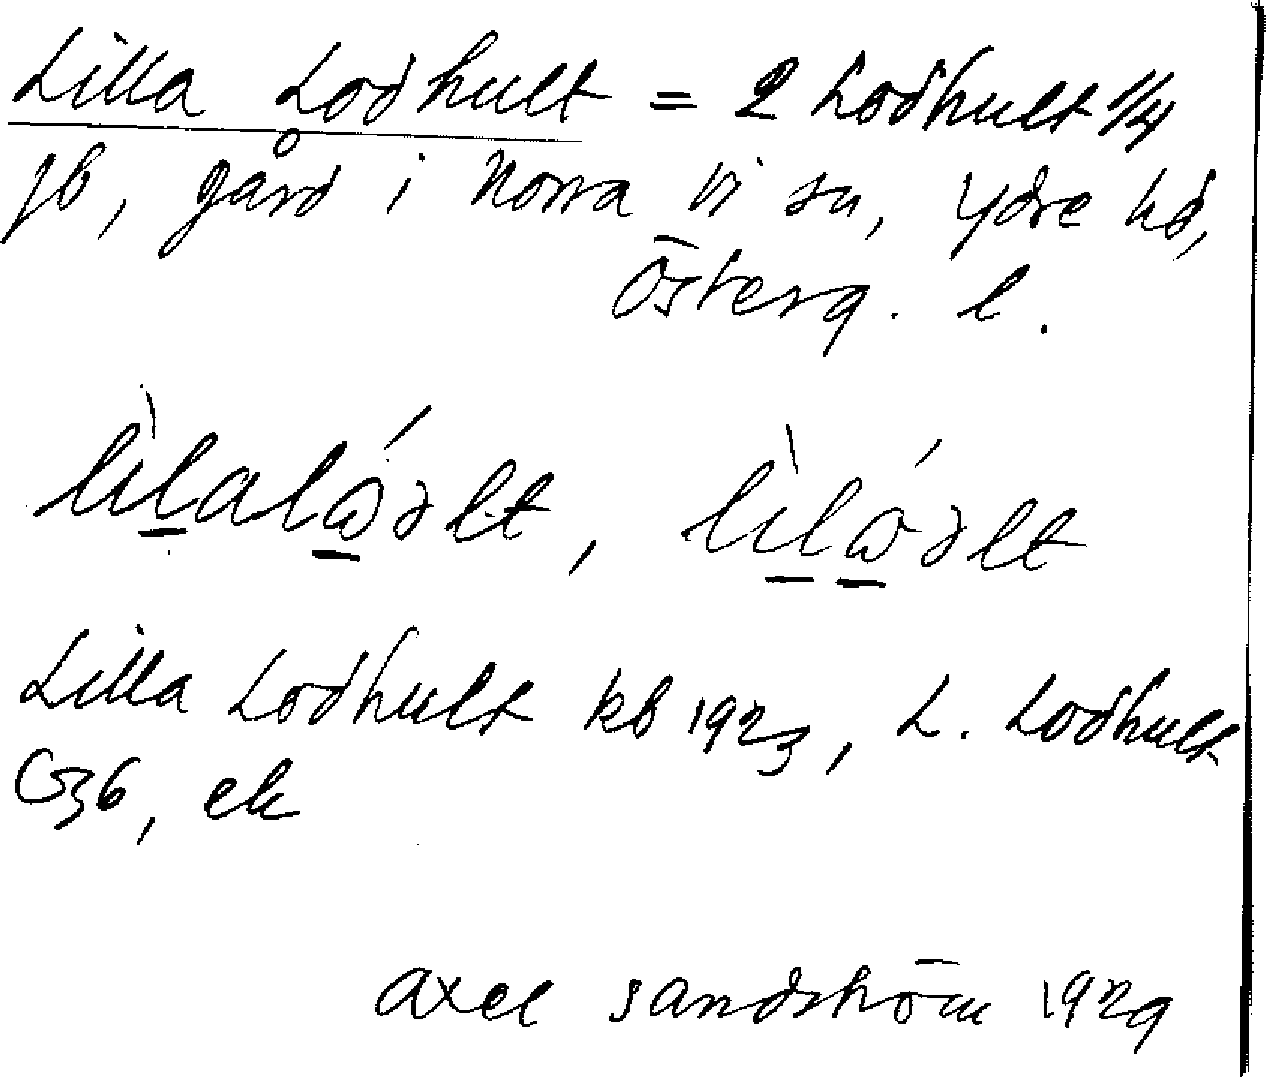 Lilla Lodhult = 2 Lodhult 1/4
jb, gård i Norra Vi sn, Ydre hd,
Österg. l.
Lilla Lodhult kb 1923, L. Lodhult
G36, ek
Axel Sandström 1929